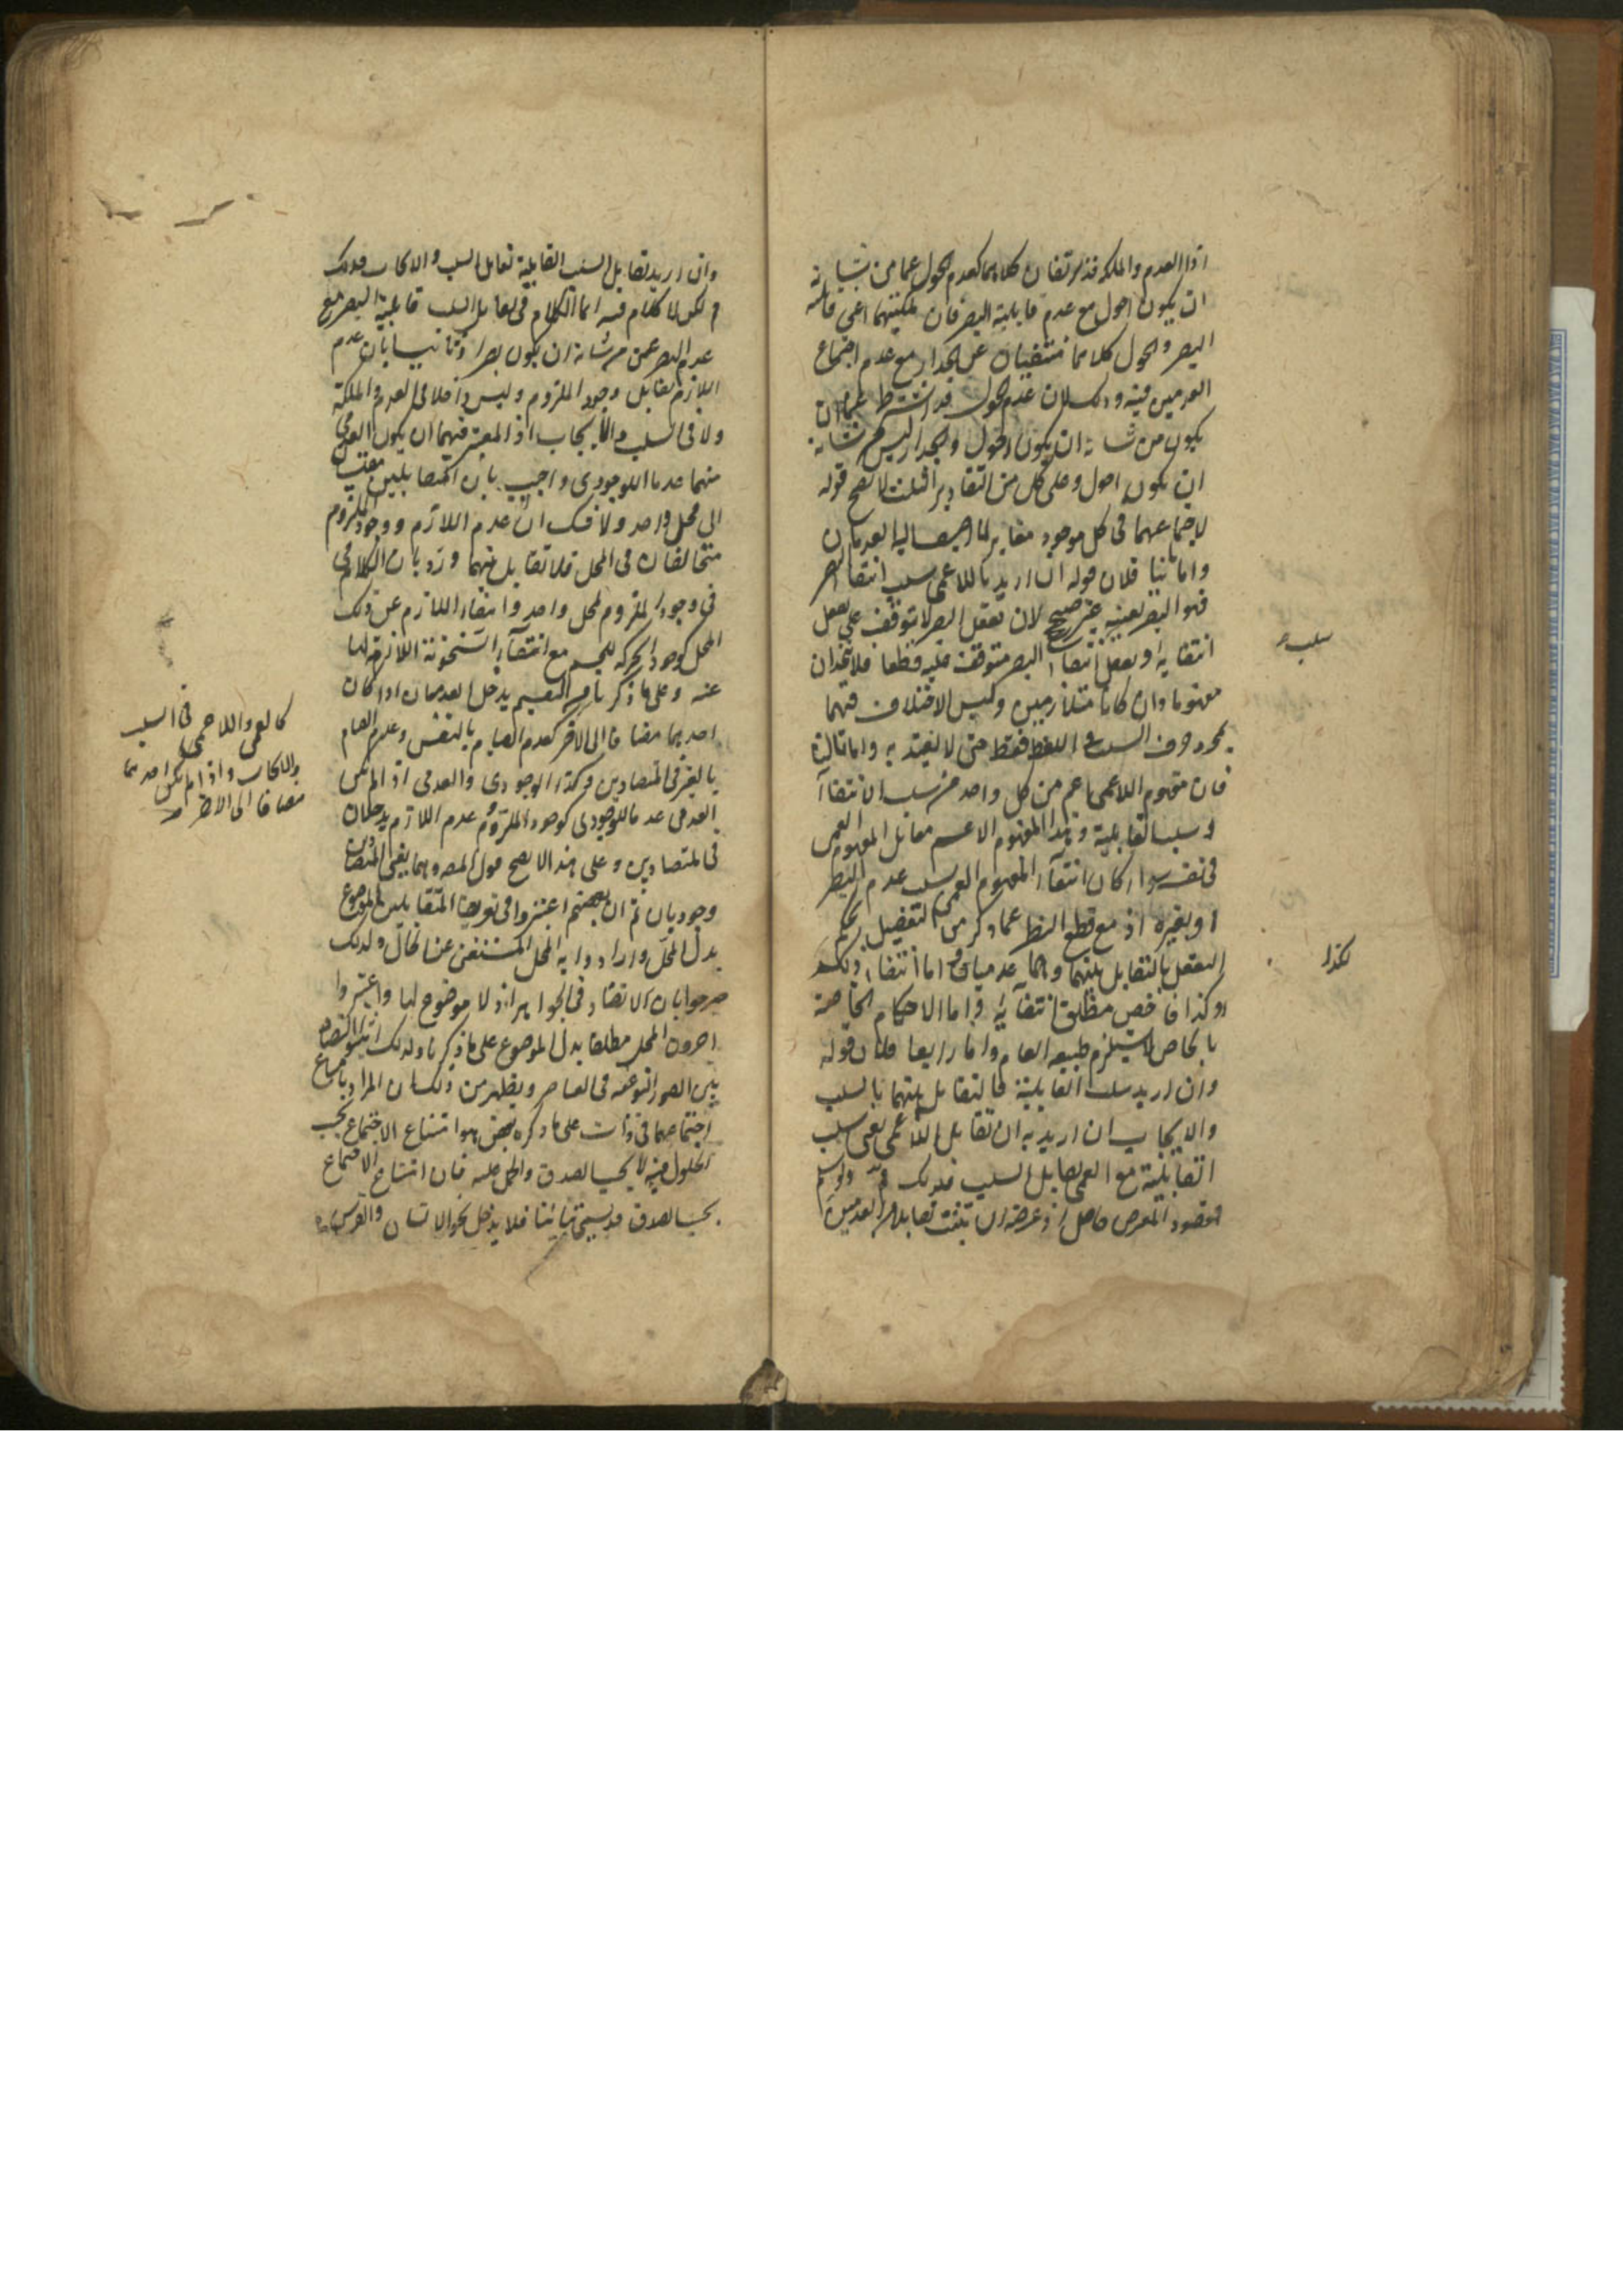 اذا العدم والملكة قد يرتفعان كلاهما كعدم الحول عما من شانه
ان يكون احول مع عدم قابلية البصر فان ملكتيهما اعني قابلية
البصر والحول كلاهما منتفيان عن الجدار مع عدم اجتماع
العدمين فيه وذلك لان عدم الحول قد اشترط عما ان
يكون من شانه ان يكون احول والجدار ليس من شانه
ان يكون احول وعلى كل من التقادير الثلث لا يصح قوله
لاجتماعهما في كل موجود مغاير لما اضيف اليه العدمان
واما ثانيا فلان قوله ان اريد باللاعمى سلب انتفا البصر
فهو البصر بعينه غير صحيح لان تعقل البصر لا يتوقف على تعقل
انتفايه وتعقل انتفا البصر متوقف عليه قطعا فلا يتحدان
مفهوما وان كانا متلازمين وليس الاختلاف فيهما
بمجرد حرف السلب في اللفظ فقط حتى لا يعتد به واما ثالثا
فان مفهوم اللاعمى اعم من كل واحد من سلب الانتفاء
وسلب القابلية وهذا المفهوم الاعم مقابل لمفهوم العمى
في نفسه سواء كان انتفاء المفهوم العمى سلب عدم البصر
او بغيره اذ مع قطع النظر عما ذكر من التفصيل يحكم
العقل بالتقابل بينهما وهما عدميان واما انتفاء ذلك
وكذا فاخص من مطلق انتفائه واما الاحكام الخاصة
بالخاص لا يستلزم طبيعة العام واما رابعا فلان قوله
وان اريد سلب القابلية فالتقابل بينهما بالسلب
والايجاب ان اريد به ان تقابل اللاعمى بمعنى سلب
القابلية مع العمى تقابل السلب فذلك
مقصود المعترض حاصل اذ غرضه ان يثبت تقابل العدمين
سلب
لكذا
وان اريد تقابل السلب القابلية تقابل السلب والايجاب فذلك
م لكن لا كلام فيه انما الكلام في تقابل سلب قابلية البصر مع
عدم البصر عمن من شانه ان يكون بصيرا وثانيا بان عدم
اللازم يقابل وجود الملزوم وليس داخلا في العدم والملكة
ولا في السلب والايجاب اذ المعتبر فيهما ان يكون العدمي
منهما عدما للوجودي واجيب بان المتقابلين
الى محل واحد ولا شك ان عدم اللازم ووجود الملزوم
متخالفان في المحل فلا تقابل بينهما ورد بان الكلام
في وجود الملزوم لمحل واحد وانتفاء اللازم عن ذلك
المحل كوجود الحركة للجسم مع انتفاء السخونة اللازمة لها
عنه وعلى ما ذكرنا من التقسيم يدخل العدمان اذا كان
احدهما مضافا الى الاخر كعدم القيام بالنفس وعدم القيام
بالغير في المتضادين وكذا الوجودي والعدمي اذا لم يكن
العدمي عدما للوجودي كوجود الملزوم وعدم اللازم يدخلان
في المتضادين وعلى هذا لا يصح قول المص وهما يعني المتضادان
وجوديان ثم ان بعضهم اعتبروا في تعريف المتقابلين الموضوع
بدل المحل وارادوا به المحل المستغني عن الحال ولذلك
صرحوا بان لا تضاد في الجواهر اذ لا موضوع لها واعتبروا
اخرون المحل مطلقا بدل الموضوع على ما ذكرنا ولذلك اثبتوا التضاد
بين الصور النوعية في العناصر ويظهر من ذلك ان المراد بامتناع
اجتماعهما في ذات على ما ذكره بعض هو امتناع الاجتماع بحسب
الحلول فيه لا بحسب الصدق والحمل عليه فان امتناع الاجتماع
بحسب الصدق قد يسمى تباينا فلا يدخل نحو الانسان والفرس
كالعمى واللاعمى في السلب
والايجاب واذا لم يكن احدهما
مضافا الى الاخر